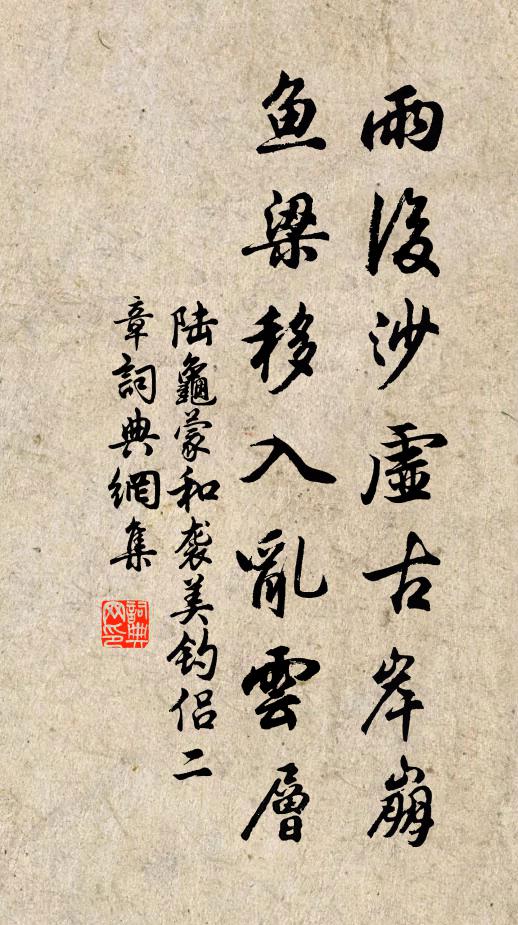 雨後沙虛古岸崩
魚梁移入亂雲層
陆龜蒙和袭美钓侣二
章詞典網集
詞典
网印